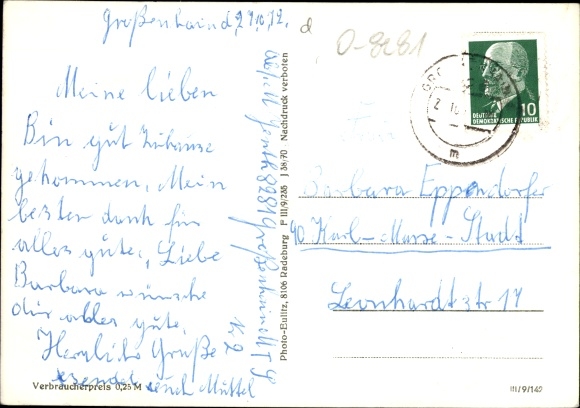 Großenhaind, 29.10.72.
d
0-8281
Meine lieben
Bin gut Zuhause
gekommen, Mein
besten dank für
alles gute, Liebe
Barbara wünsche
dir alles gute,
Herzliche Grüße
sendet euch Muttel
8281 Großenhain
Nr 2
Verbraucherpreis 0,25 M
Photo-Eulitz, 8106 Radeburg F III/9/235 J 38/70 Nachdruck verboten
10
DEUTSCHE
DEMOKRATISCHE REPUBLIK
m
Barbara Eppendorfer
90 Karl-Marx-Stadt
Leonhardtstr 17
III/9/142